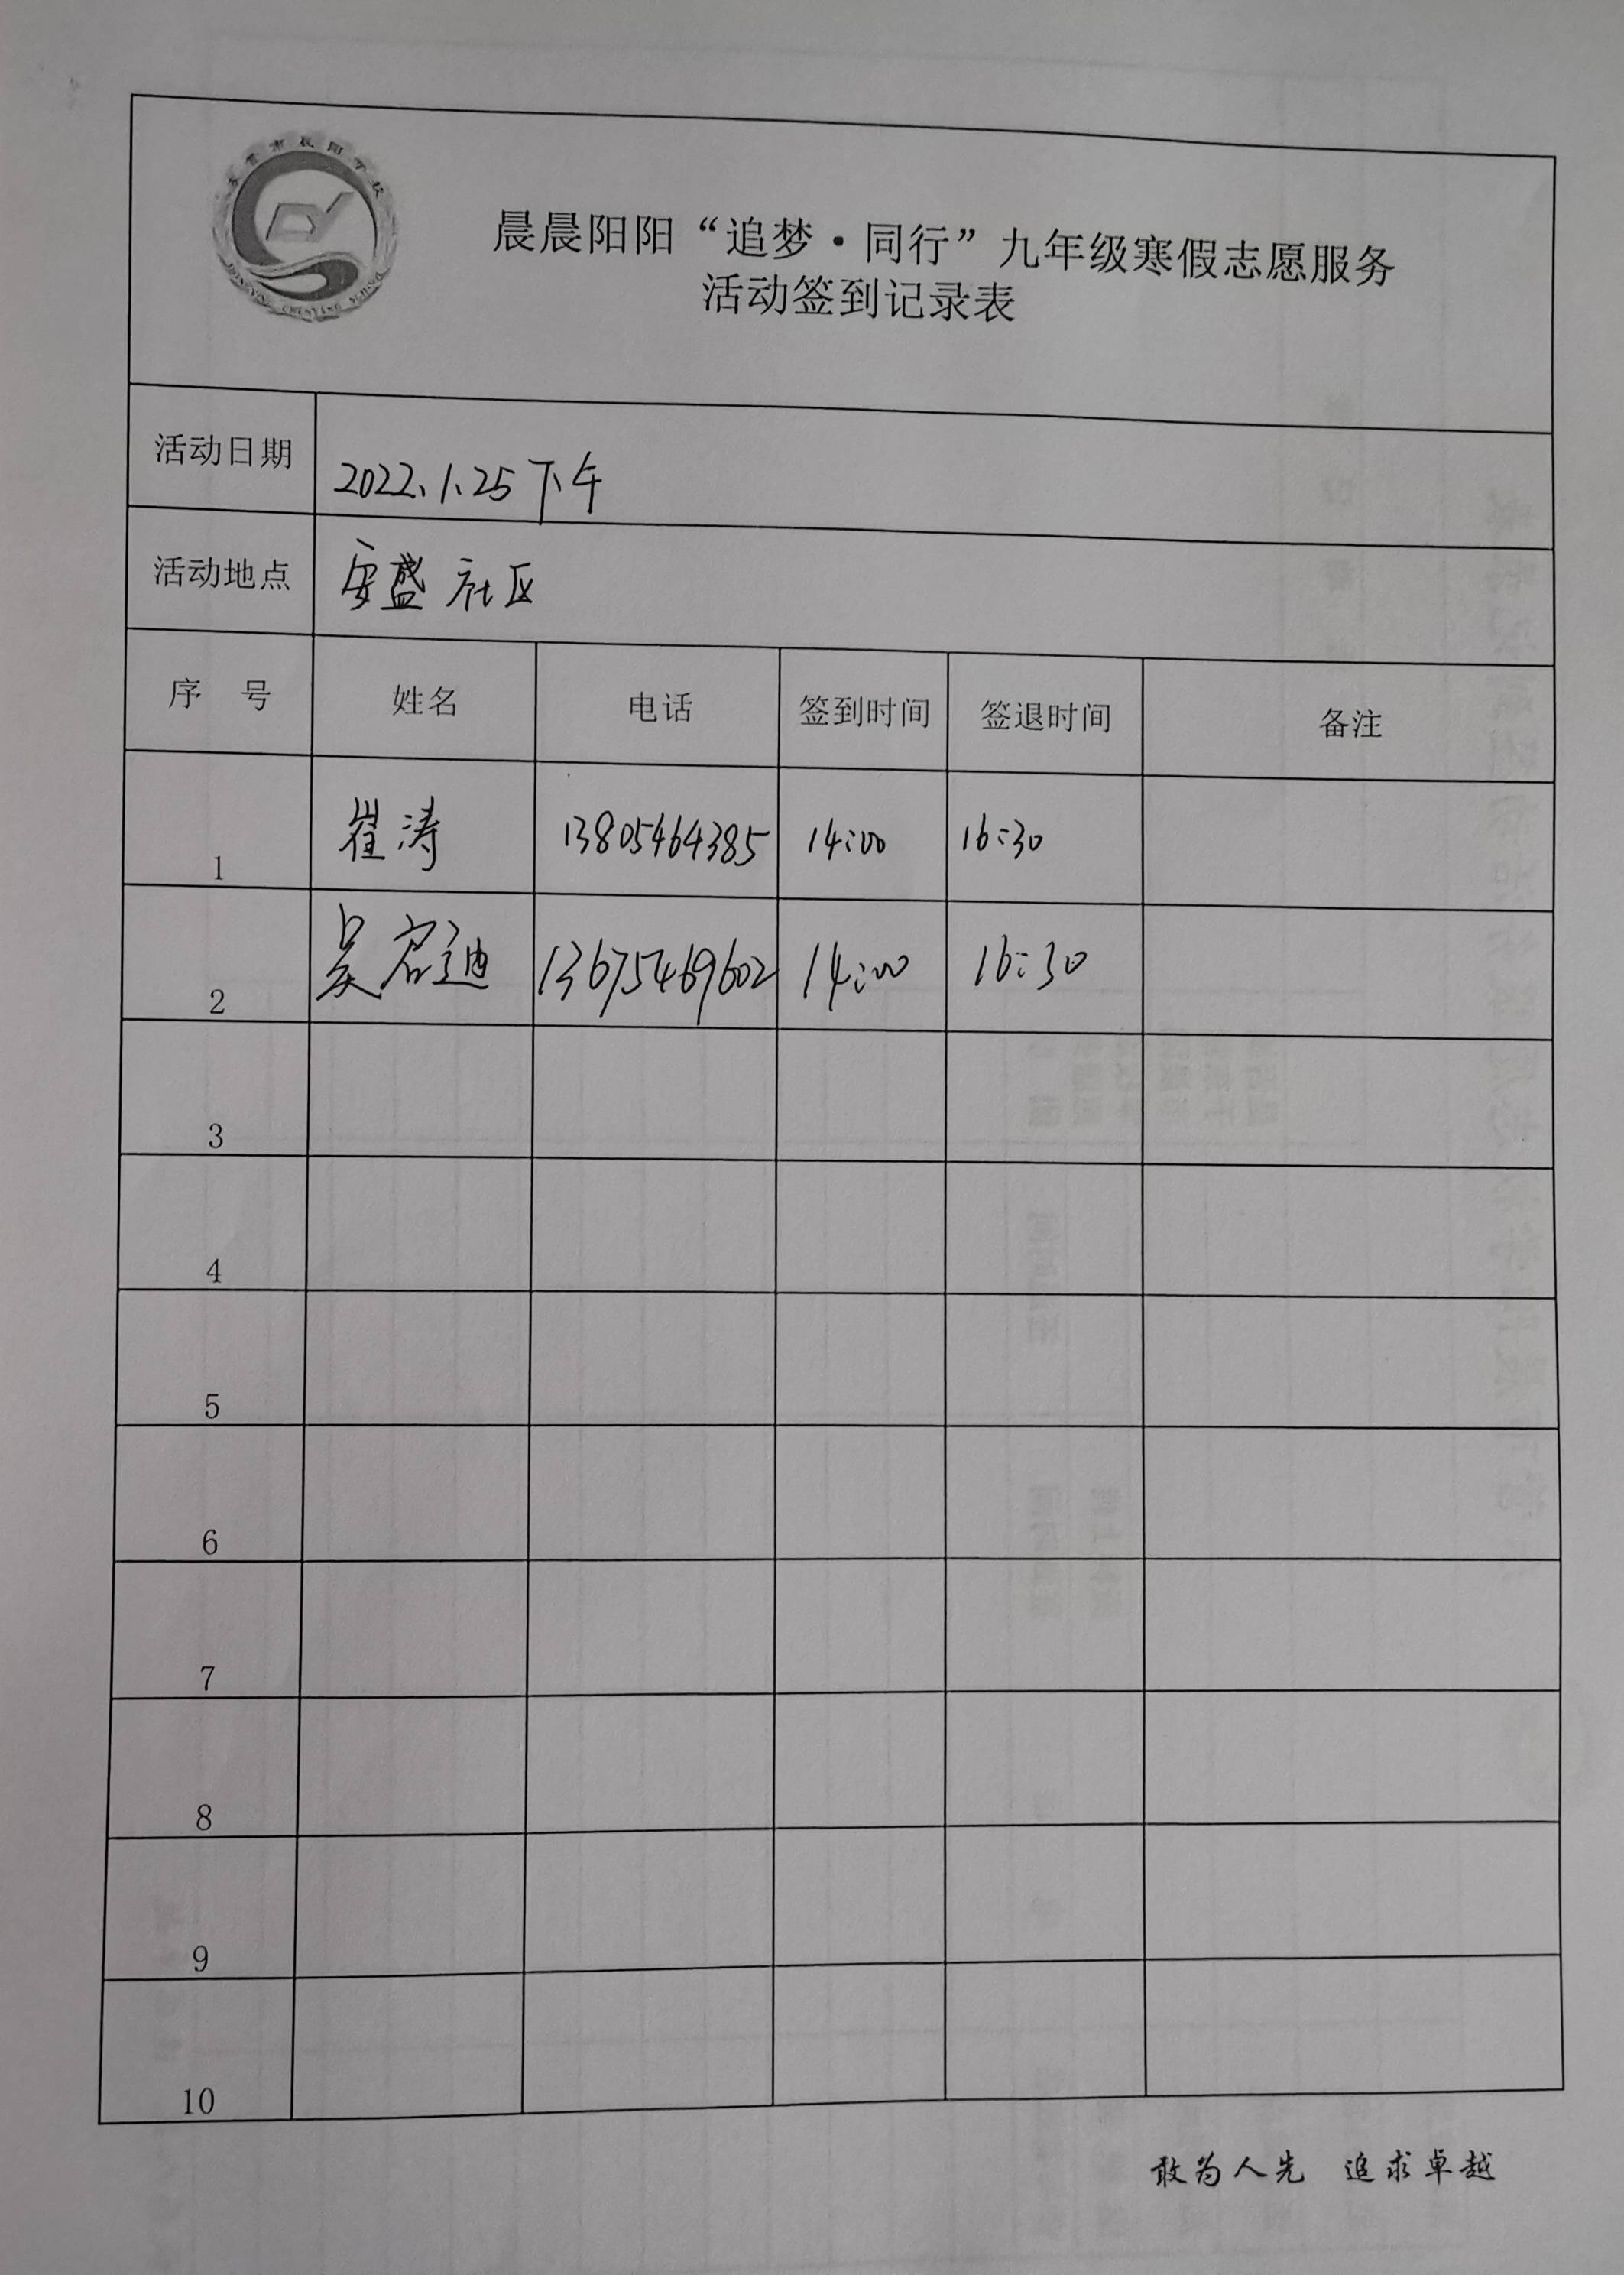 东营市晨阳学校
DONGYING CHENYANG SCHOOL
晨晨阳阳“追梦·同行”九年级寒假志愿服务
活动签到记录表
活动日期 2022、1、25 下午
活动地点 安盛 社区
序 号 姓名 电话 签到时间 签退时间 备注
1 崔涛 13805464385 14:00 16:30
2 吴启迪 13675469602 14:00 16:30
3
4
5
6
7
8
9
10
敢为人先 追求卓越